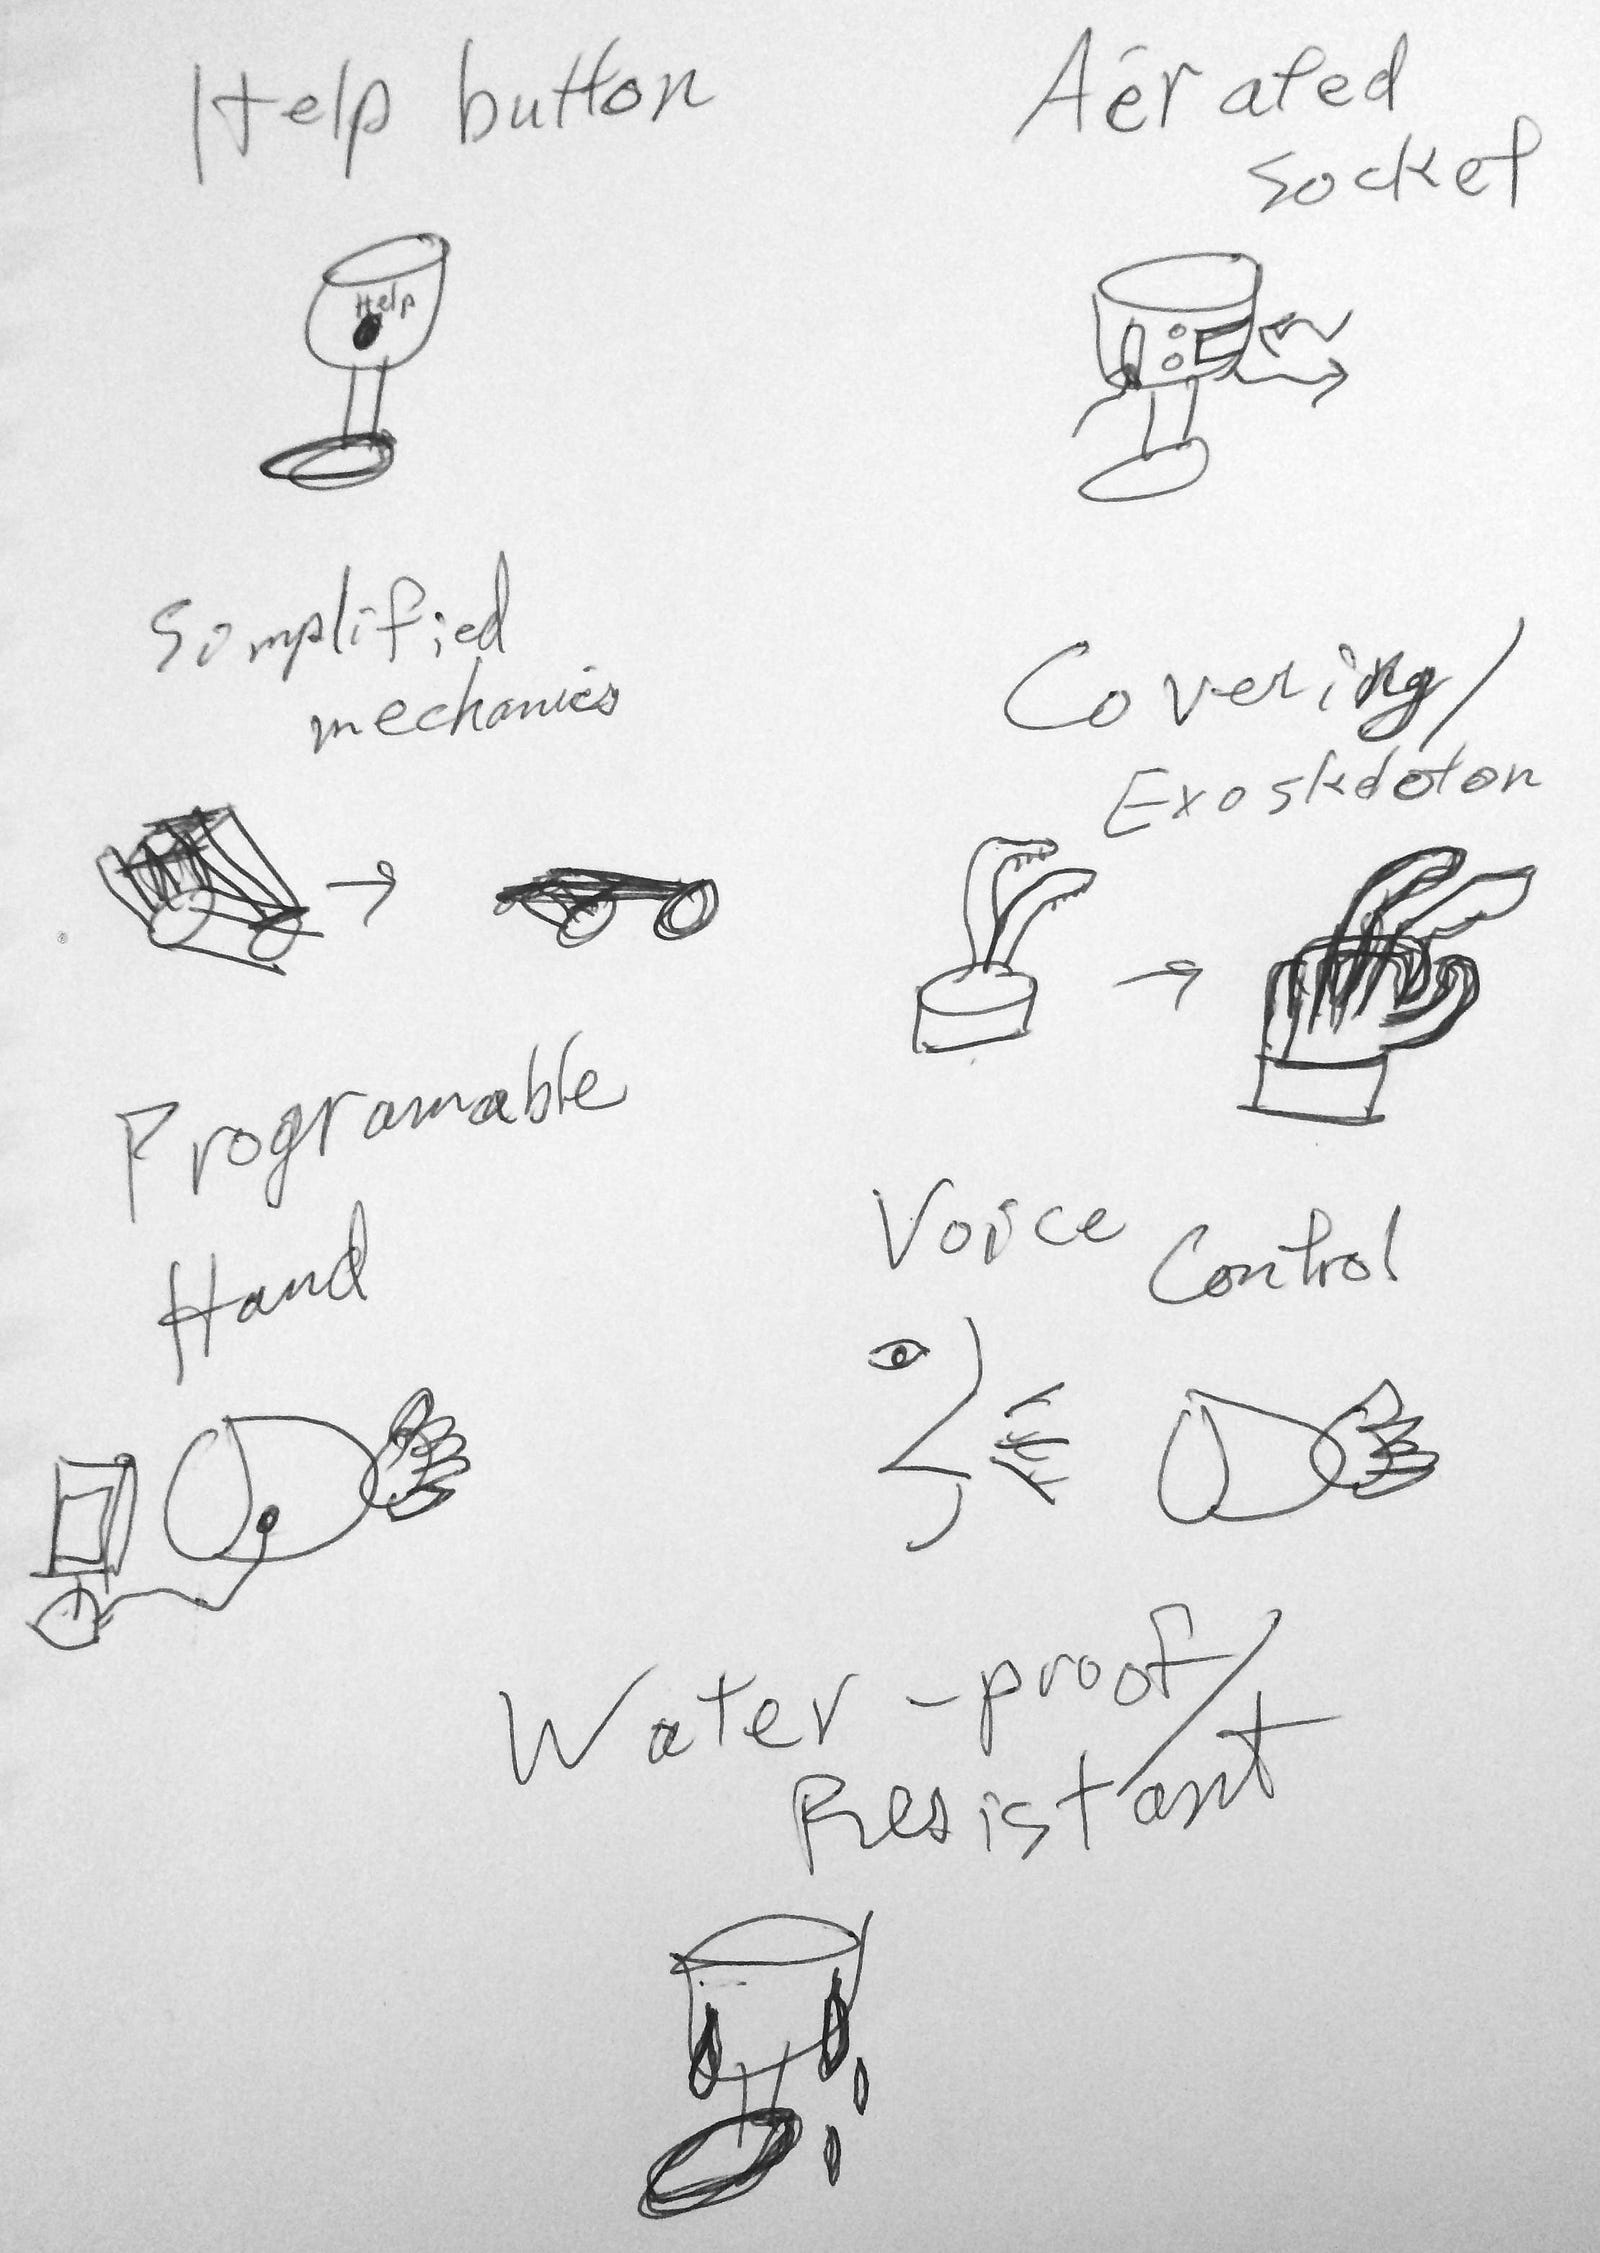 Help button
Aérated
socket
Help
Somplified
mechanics
Covering/
Exoskdoton
Programable
Hand
Voice Control
Water-proof/
Resistant